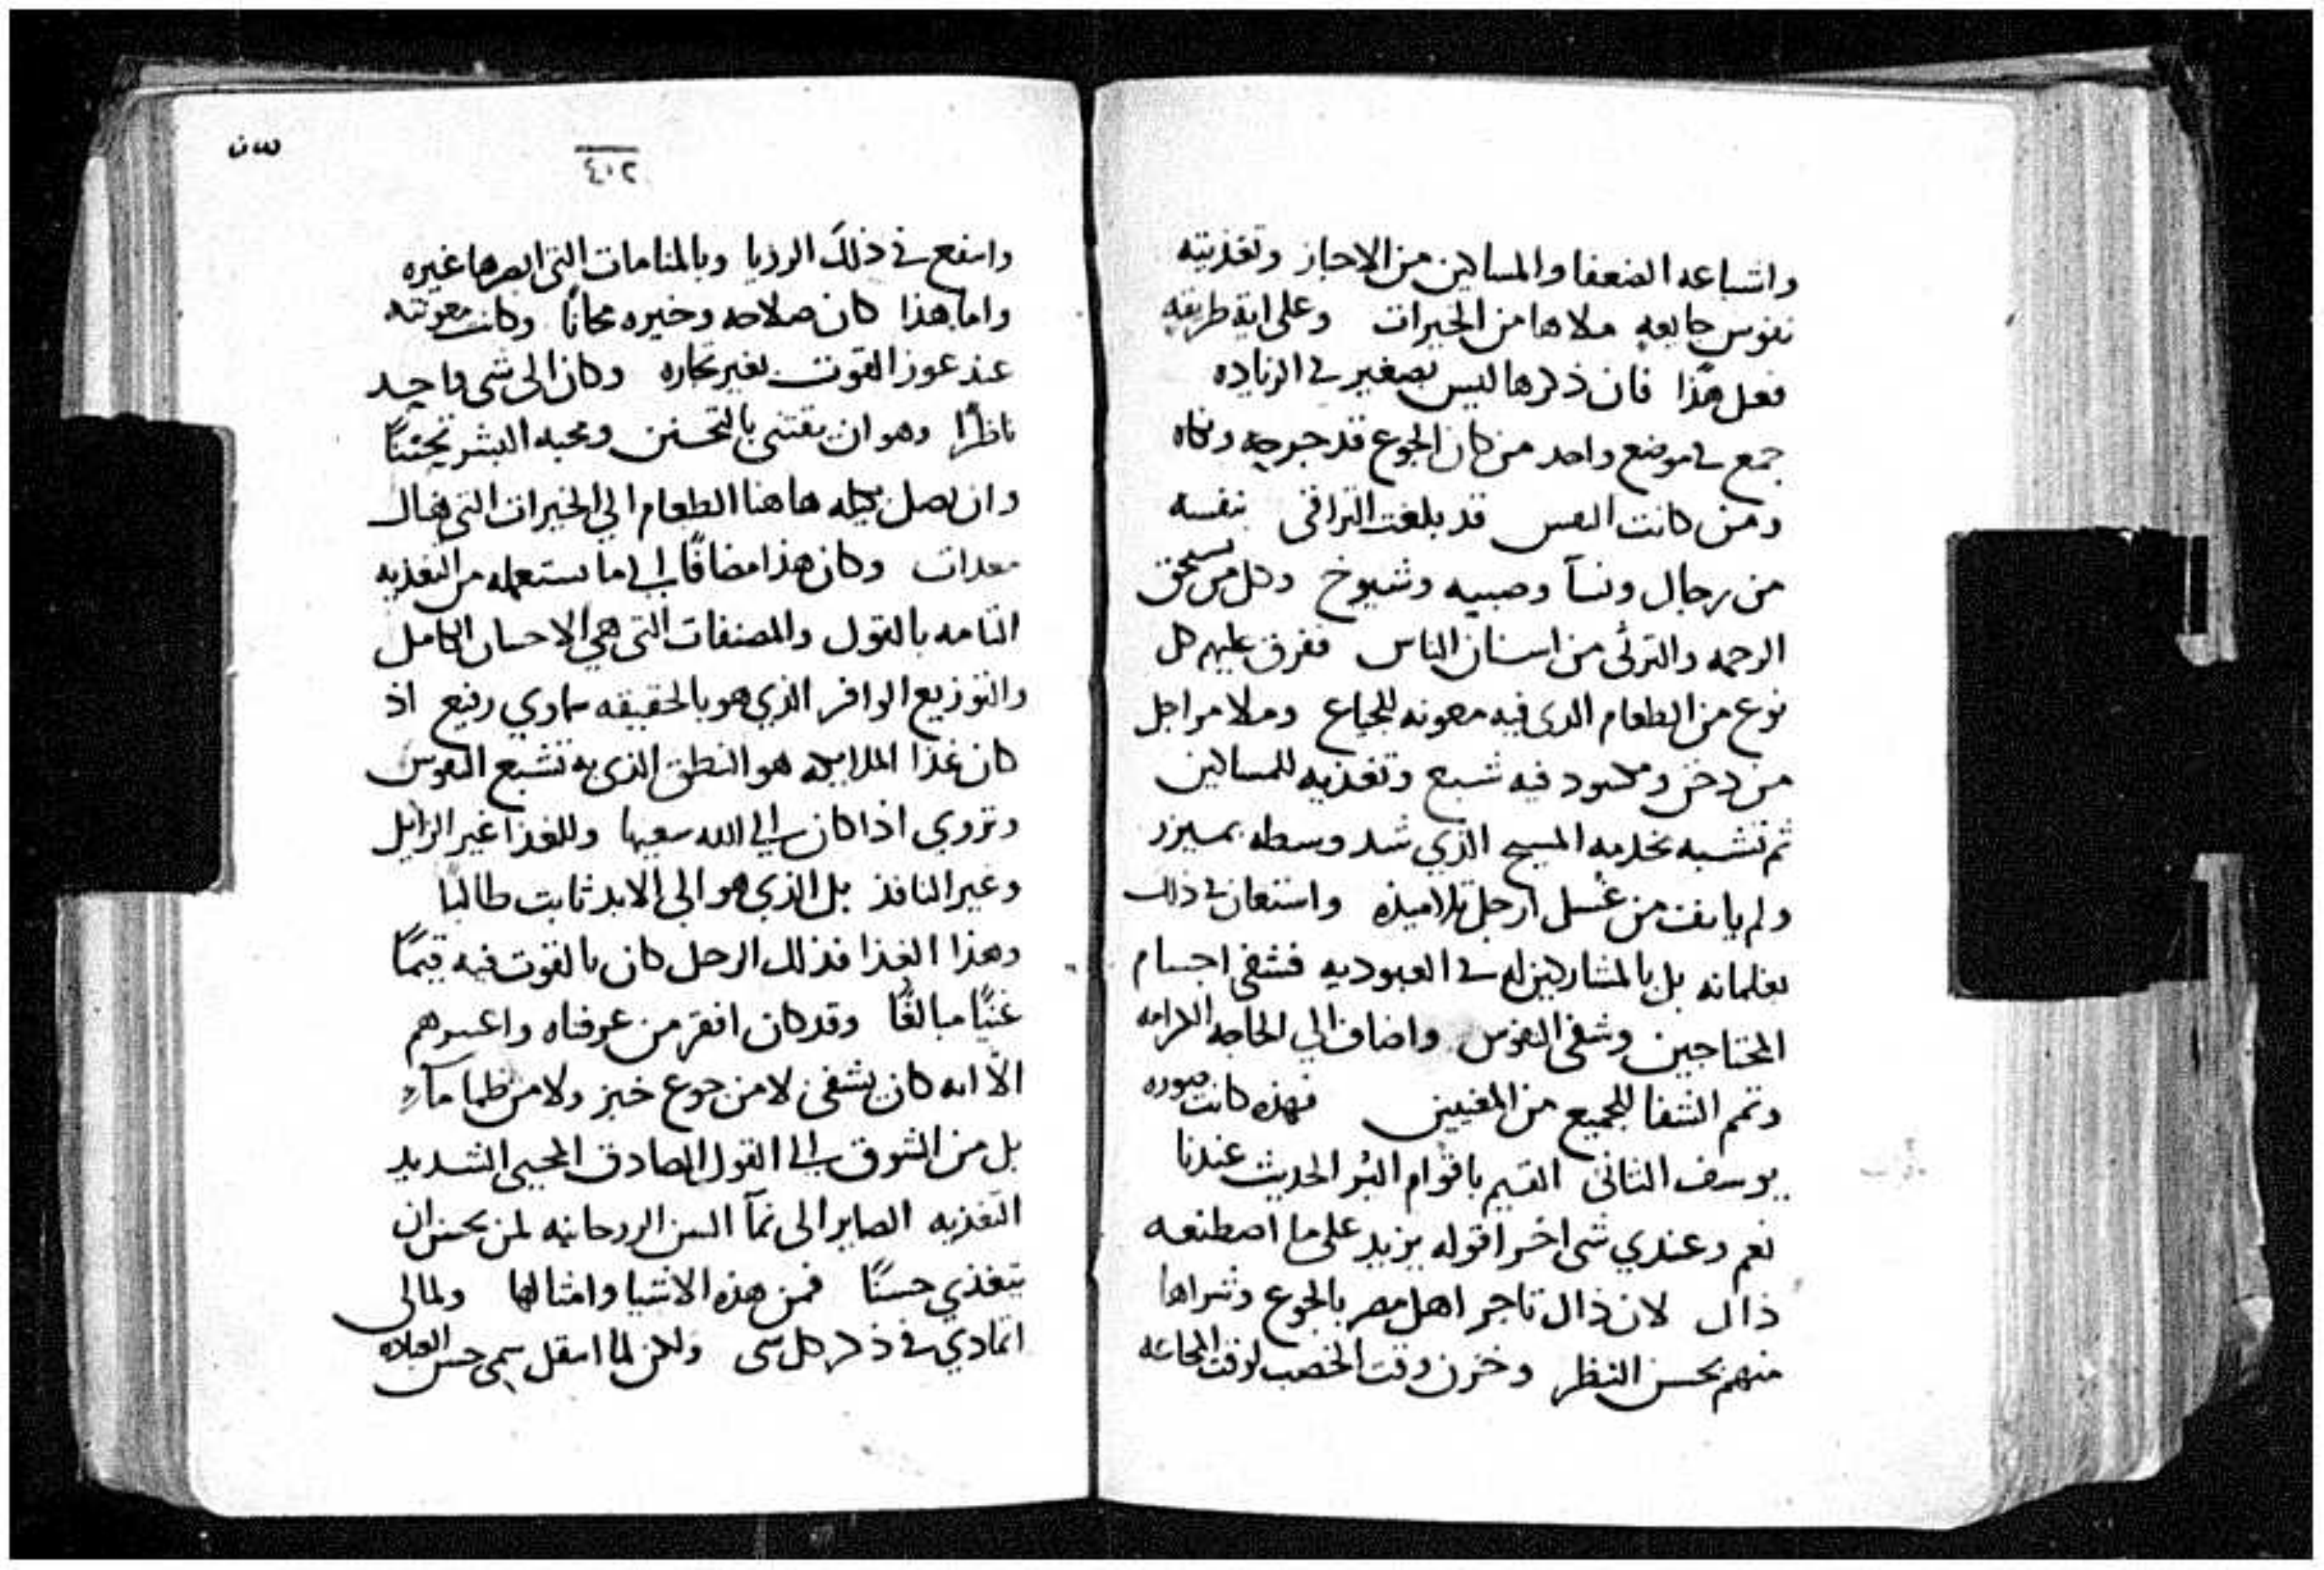 واشباعه الضعفا والمساكين من الاخباز وتغذيته
نفوس جايعه ملاها من الخيرات وعلى اية طريقه
فعل هذا فان ذكرها ليس بصغير في الزياده
جمع في موضع واحد من كان الجوع قد جرحه ونكاه
ومن كانت النفس قد بلغت التراقي بنفسه
من رجال ونسآ وصبيه وشيوخ وكل من يستحق
الرحمه والترثى من اسنان الناس ففرق عليهم كل
نوع من الطعام الدى فيه معونه للجياع وملا مراجل
من دخن ومكسود فيه شبع وتغذيه للمساكين
ثم تشبه بخدمه المسيح الذي شد وسطه بميزر
ولم يانف من غسل ارجل تلاميذه واستعان في ذلك
بغلمانه بل بالمشاركين له في العبوديه فشفى اجسام
المحتاجين وشفى النفوس واضاف الي الحاجه الكرامه
وتمم الشفا للجميع من المعنيين فهذه كانت صوره
يوسف الثانى القيم باقوام البُر الحديث عندنا
نعم وعندي شى اخر اقوله يزيد على ما اصطنعه
ذاك لان ذاك تاجر اهل مصر بالجوع وشراها
منهم بحسن النظر وخزن وقت الخصب لوقت المجاعه
٤٠٢
وانتفع في ذلك الرويا وبالمنامات التى ابصرها غيره
واما هذا كان صلاحه وخيره مجانًا وكانت معونته
عند عوز القوت بغير تجاره وكان الى شى واحد
ناظرًا وهو ان يقتنى بالتحنن ومحبه البشر تحننًا
وان يصل بكيله هاهنا الطعام الي الخيرات التي هناك
معدات وكان هذا مضافًا الى ما يستعمله من التغذيه
التامه بالقول والمصنفات التى هي الاحسان الكامل
والتوزيع الوافر الذي هو بالحقيقه سماوي رفيع اذ
كان غذا الملايكه هو النطق الذى به تشبع النفوس
وتروي اذا كان الي الله سعيها وللغذا غير الزايل
وغير النافذ بل الذي هو الى الابد ثابت طالبًا
وهذا الغذا فذلك الرجل كان بالقوت فيه قيمًا
غنيًا مبالغًا وقد كان افقر من عرفناه واعسرهم
الا انه كان يشفى لا من جوع خبز ولا من ظما مآءٍ
بل من الشوق الى القول الصادق المحيى الشديد
التغذيه الصاير الى نمآ السن الروحانيه لمن يحسن ان
يتغذي حسنًا فمن هذه الاشيا وامثالها ومالى
اتمادي في ذكر كل شى ولكن لما انتقل سمى حسن العباده